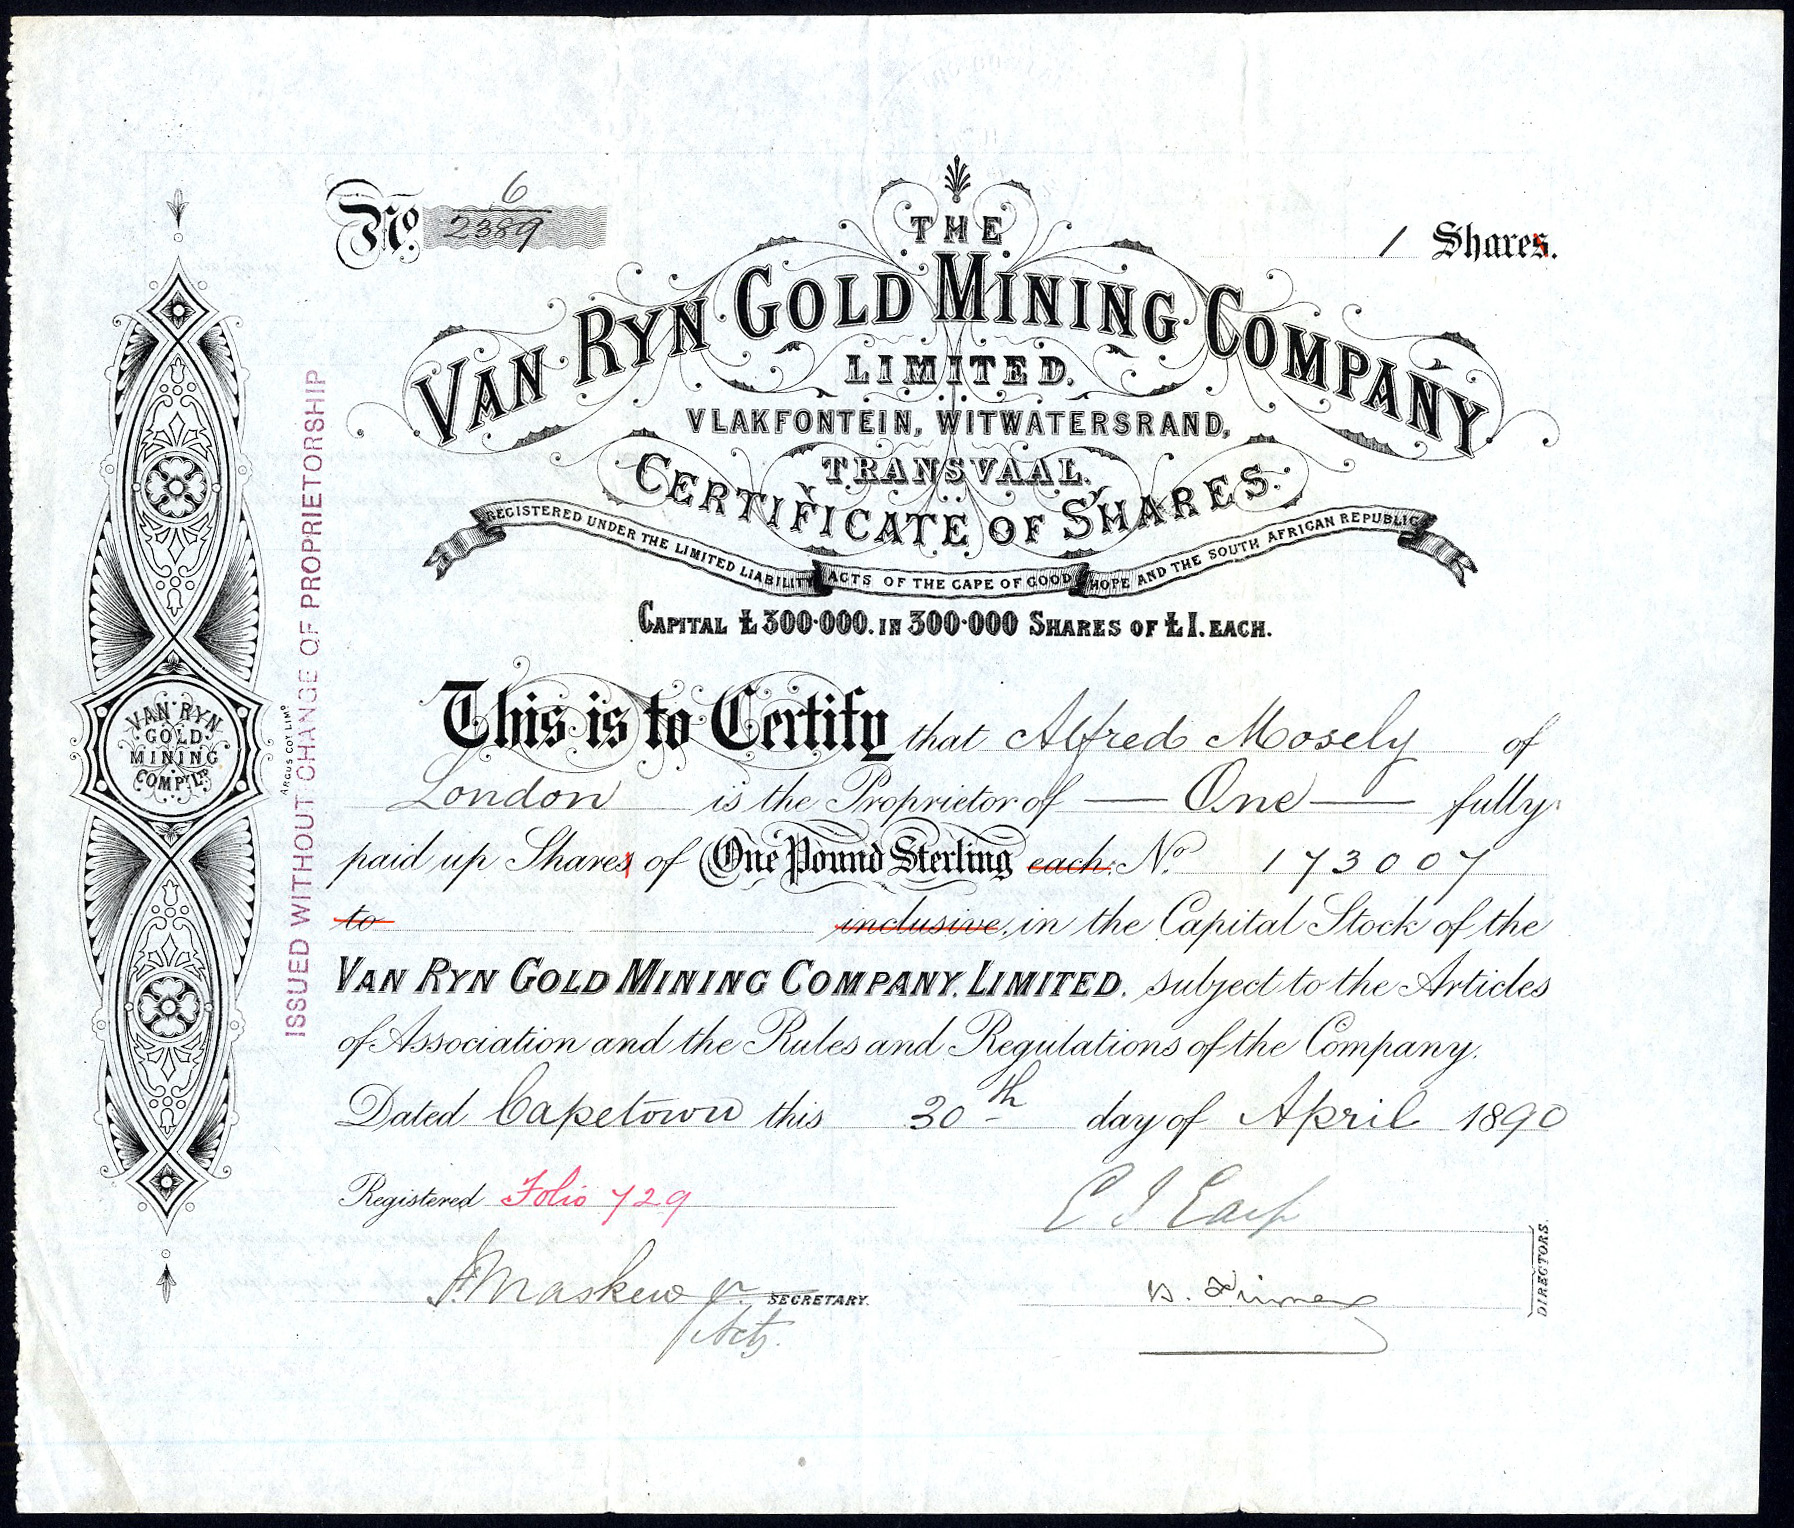 6
No. 2389
1 Shares.
THE
VAN RYN GOLD MINING COMPANY
LIMITED.
VLAKFONTEIN, WITWATERSRAND,
TRANSVAAL.
CERTIFICATE OF SHARES.
REGISTERED UNDER THE LIMITED LIABILITY ACTS OF THE CAPE OF GOOD HOPE AND THE SOUTH AFRICAN REPUBLIC
CAPITAL £300.000. IN 300.000 SHARES OF £1. EACH.
This is to Certify that Alfred Mosely of
London is the Proprietor of — One — fully
paid up Shares of One Pound Sterling each: No. 173007
to inclusive, in the Capital Stock of the
VAN RYN GOLD MINING COMPANY. LIMITED. subject to the Articles
of Association and the Rules and Regulations of the Company.
Dated Capetown this 30th day of April 1890
Registered Folio 729
E J Earp
Maskew Jr. SECRETARY.
Actg.
DIRECTORS.
VAN RYN
GOLD
MINING
COMPY. LTD
ARGUS COY LIMD
ISSUED WITHOUT CHANGE OF PROPRIETORSHIP